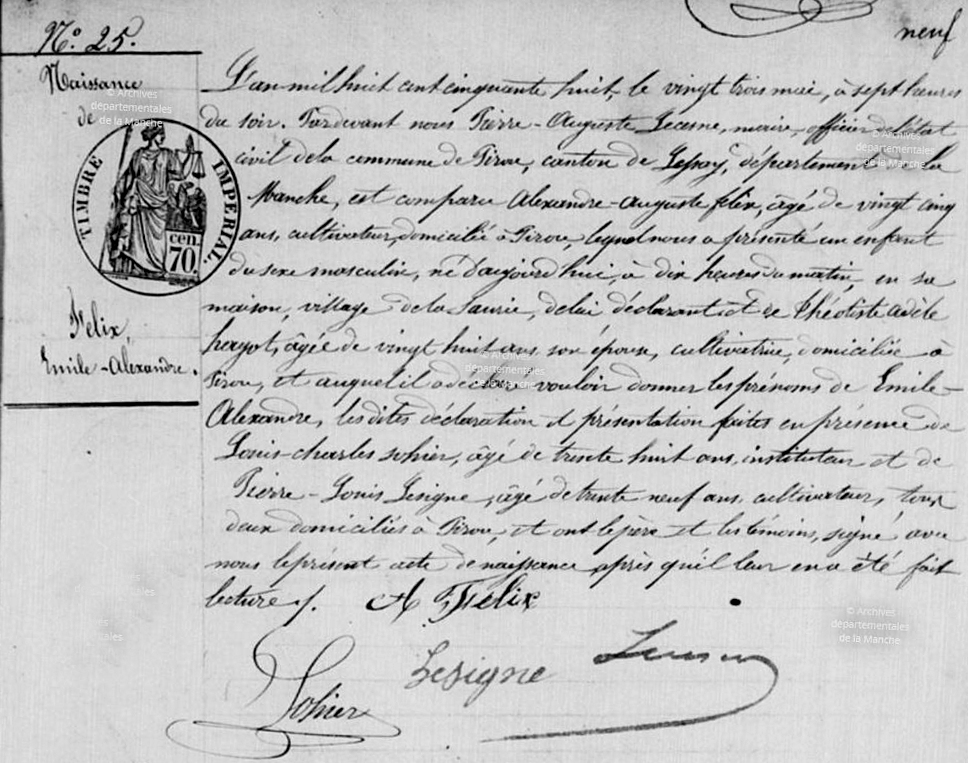 neuf
N.° 25.
Naissance
de
TIMBRE IMPERIAL.
cen.
70.
Felix,
Emile-Alexandre.
L'an mil huit cent cinquante huit, le vingt trois mai, à sept heures
du soir. Pardevant nous Pierre-Auguste Lecesne, maire, officier de l'état
civil de la commune de Pirou, canton de Lessay, département de la
Manche, est comparu Alexandre-Auguste felix, âgé de vingt cinq
ans, cultivateur, domicilié à Pirou, lequel nous a présenté un enfant
du sexe masculin, né d'aujourd'hui, à dix heures du matin, en sa
maison, village de la , de lui déclarant et de Théotiste adèle
hergot, âgée de vingt huit ans, son épouse, cultivatrice, domiciliée à
Pirou, et auquel il a déclaré vouloir donner les prénoms de Emile-
Alexandre, les dites déclaration et présentation faites en présence de
Louis-charles Sohier, âgé de trente huit ans, instituteur et de
Pierre-Louis Lesigne, âgé de trente neuf ans, cultivateur, tous
deux domiciliés à Pirou, et ont le père et les témoins, signé avec
nous le présent acte de naissance après qu'il leur en a été fait
lecture ./.
A Félix
Lesigne
Sohier
© Archives
départementales
de la Manche
© Archives
départementales
de la Manche
© Archives
départementales
de la Manche
© Archives
départementales
de la Manche